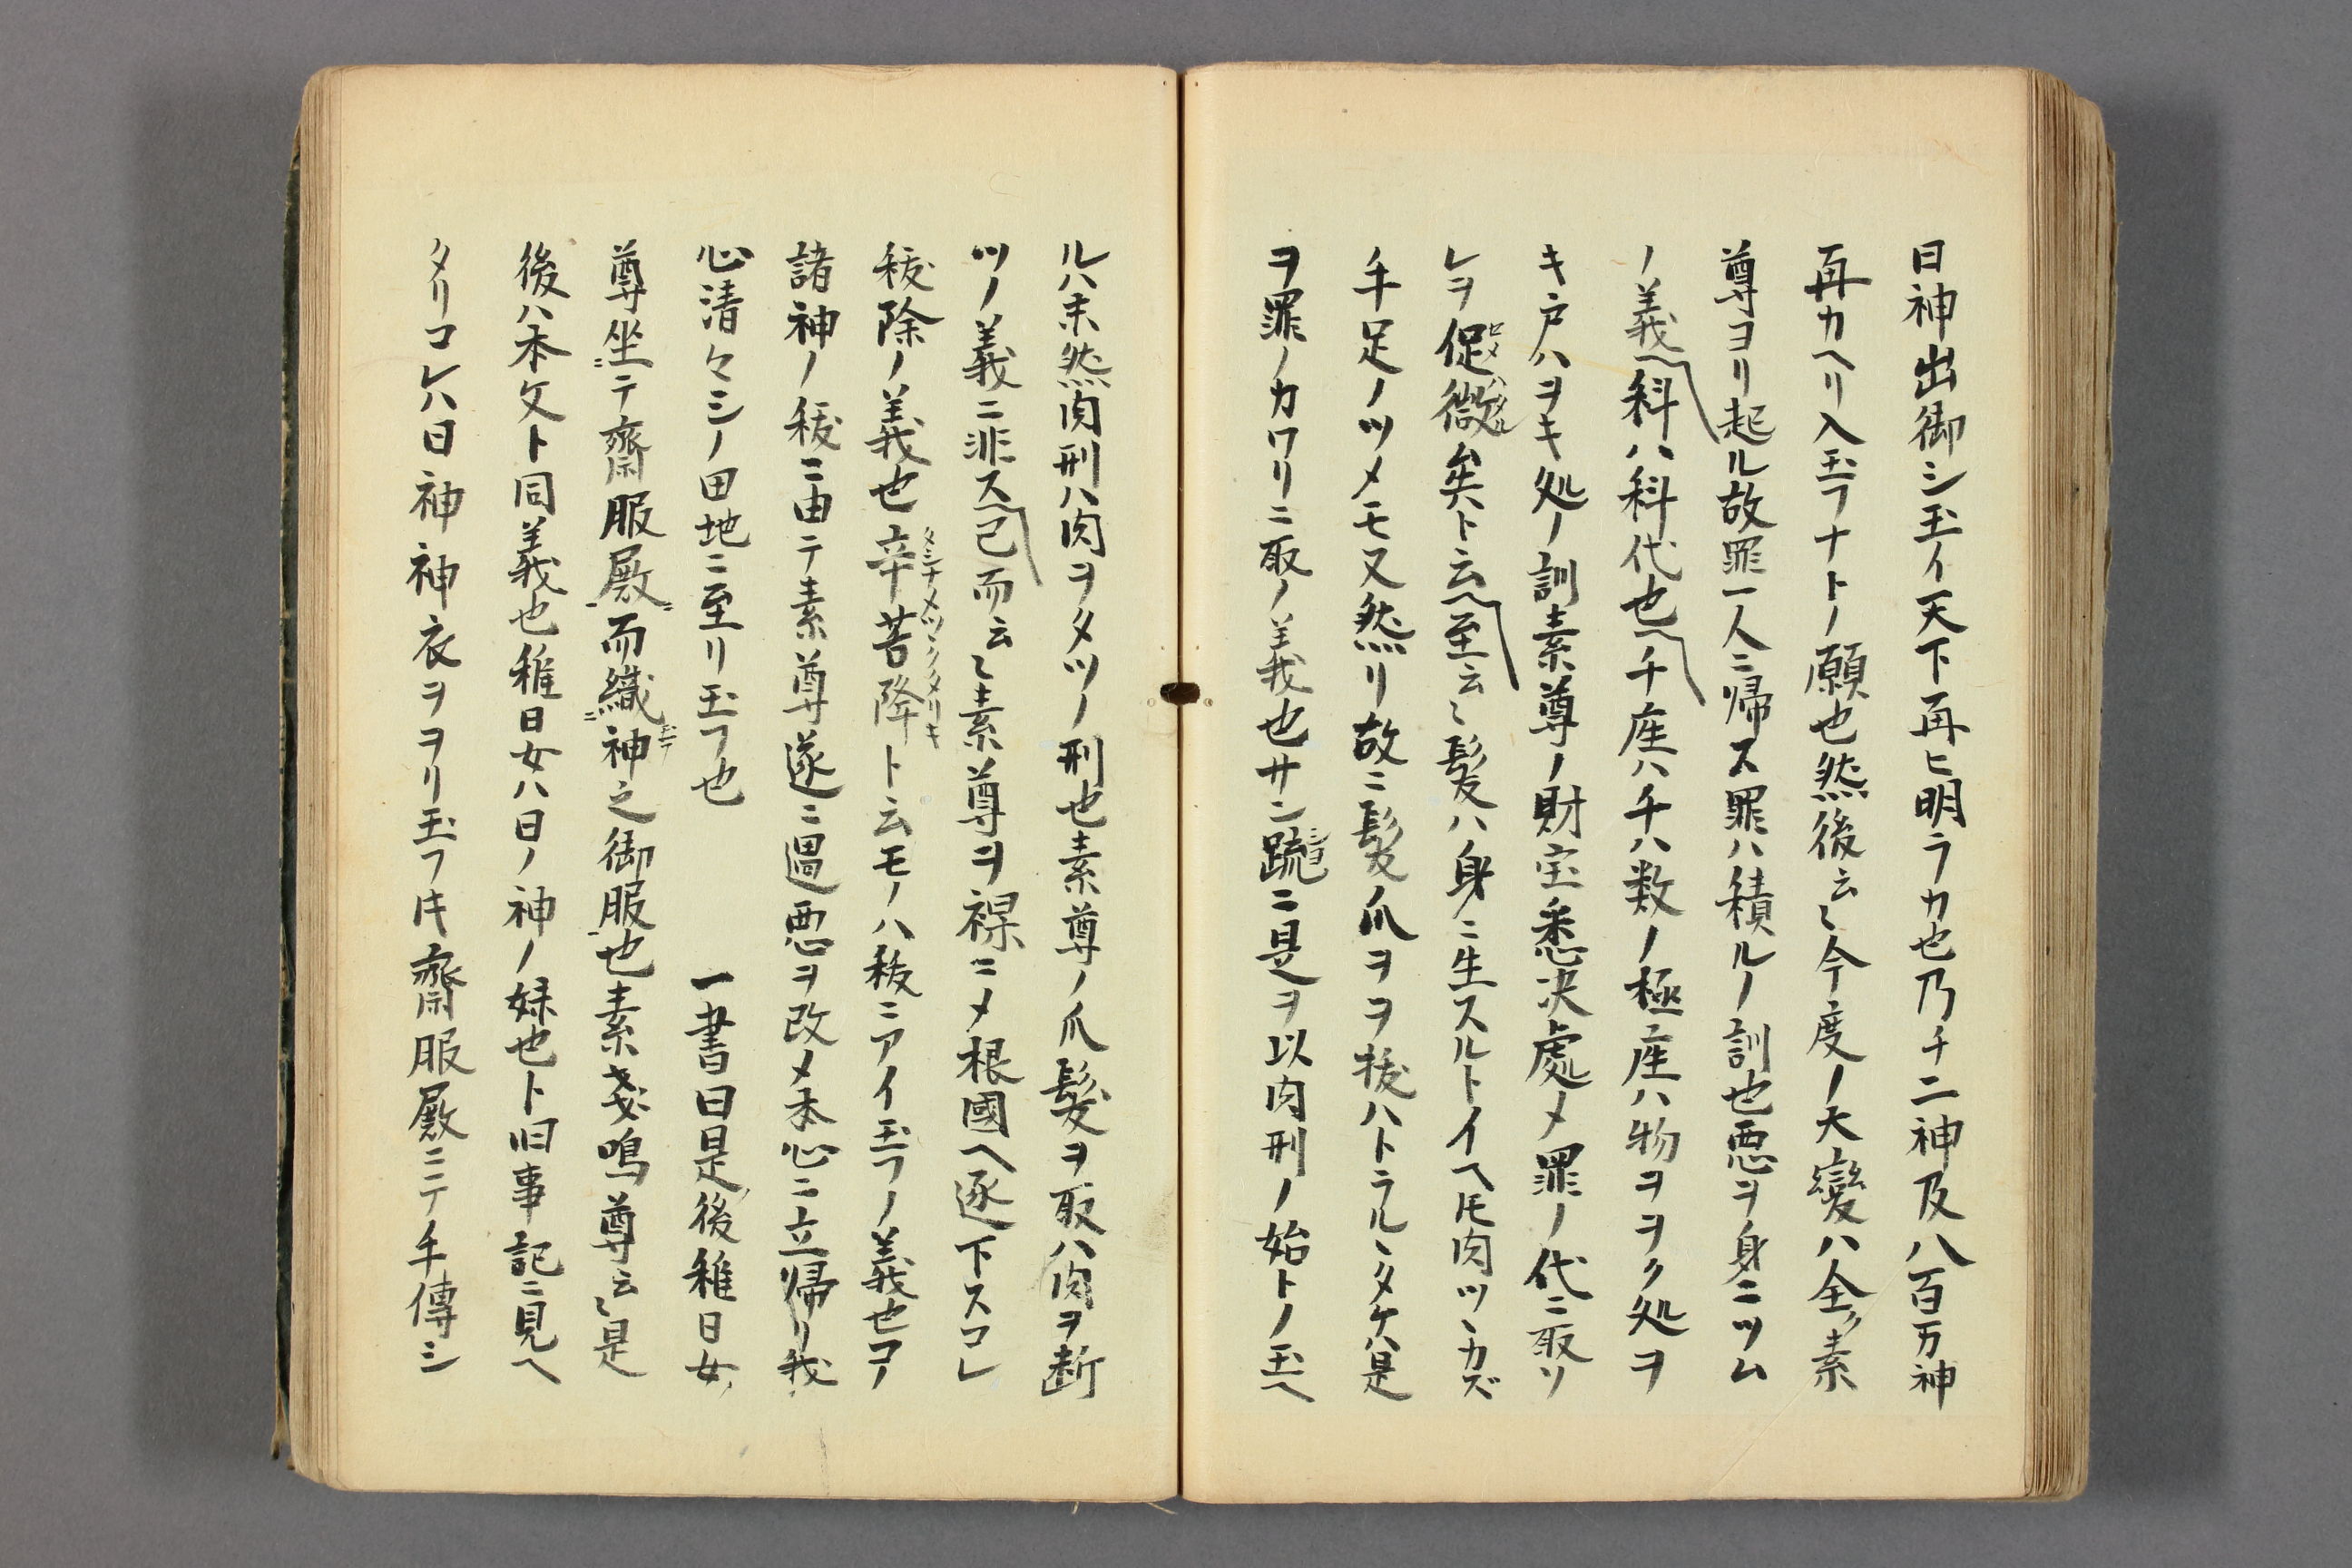 日神出御シ玉イ天下再ヒ明ラカ也乃チ二神及八百万神
再カヘリ入玉フナトノ願也然後云〻今度ノ大變ハ全ク素
尊ヨリ起ル故罪一人ニ帰ス罪ハ積ルノ訓也悪ヲ身ニツム
ノ義〽科ハ科代也〽千座ハ千ハ数ノ極座ハ物ヲヲク処ヲ
キ戸ハヲキ処ノ訓素尊ノ財宝悉决處メ罪ノ代ニ取リ
レヲ促徴矣ト云〽至云〻髪ハ身ニ生スルトイヘ𪜈肉ツヽカズ
手足ノツメモ又然リ故ニ髪爪ヲヲ抜ハトラルヽタケハ是
ヲ罪ノカワリニ取ノ義也サン䟽ニ是ヲ以肉刑ノ始トノ玉ヘ
ルハ未然肉刑ハ肉ヲタツノ刑也素尊ノ爪髪ヲ取ハ肉ヲ断
ツノ義ニ非ス〽已而云〻素尊ヲ裸ニメ根國ヘ逐下スコレ
秡除ノ義也辛苦降ト云モノハ秡ニアイ玉フノ義也コノ
諸神ノ秡ニ由テ素尊遂ニ過悪ヲ改メ本心ニ立帰リ我
心清々シノ田地ニ至リ玉フ也　一書曰是後稚日女
尊坐テ齋服殿而織神之御服也素戔嗚尊云〻是
後ハ本文ト同義也稚日女ハ日ノ神ノ妹也ト旧事記ニ見ヘ
タリコレハ日神神衣ヲヲリ玉フ𪜈齋服殿ニテ手傳シ